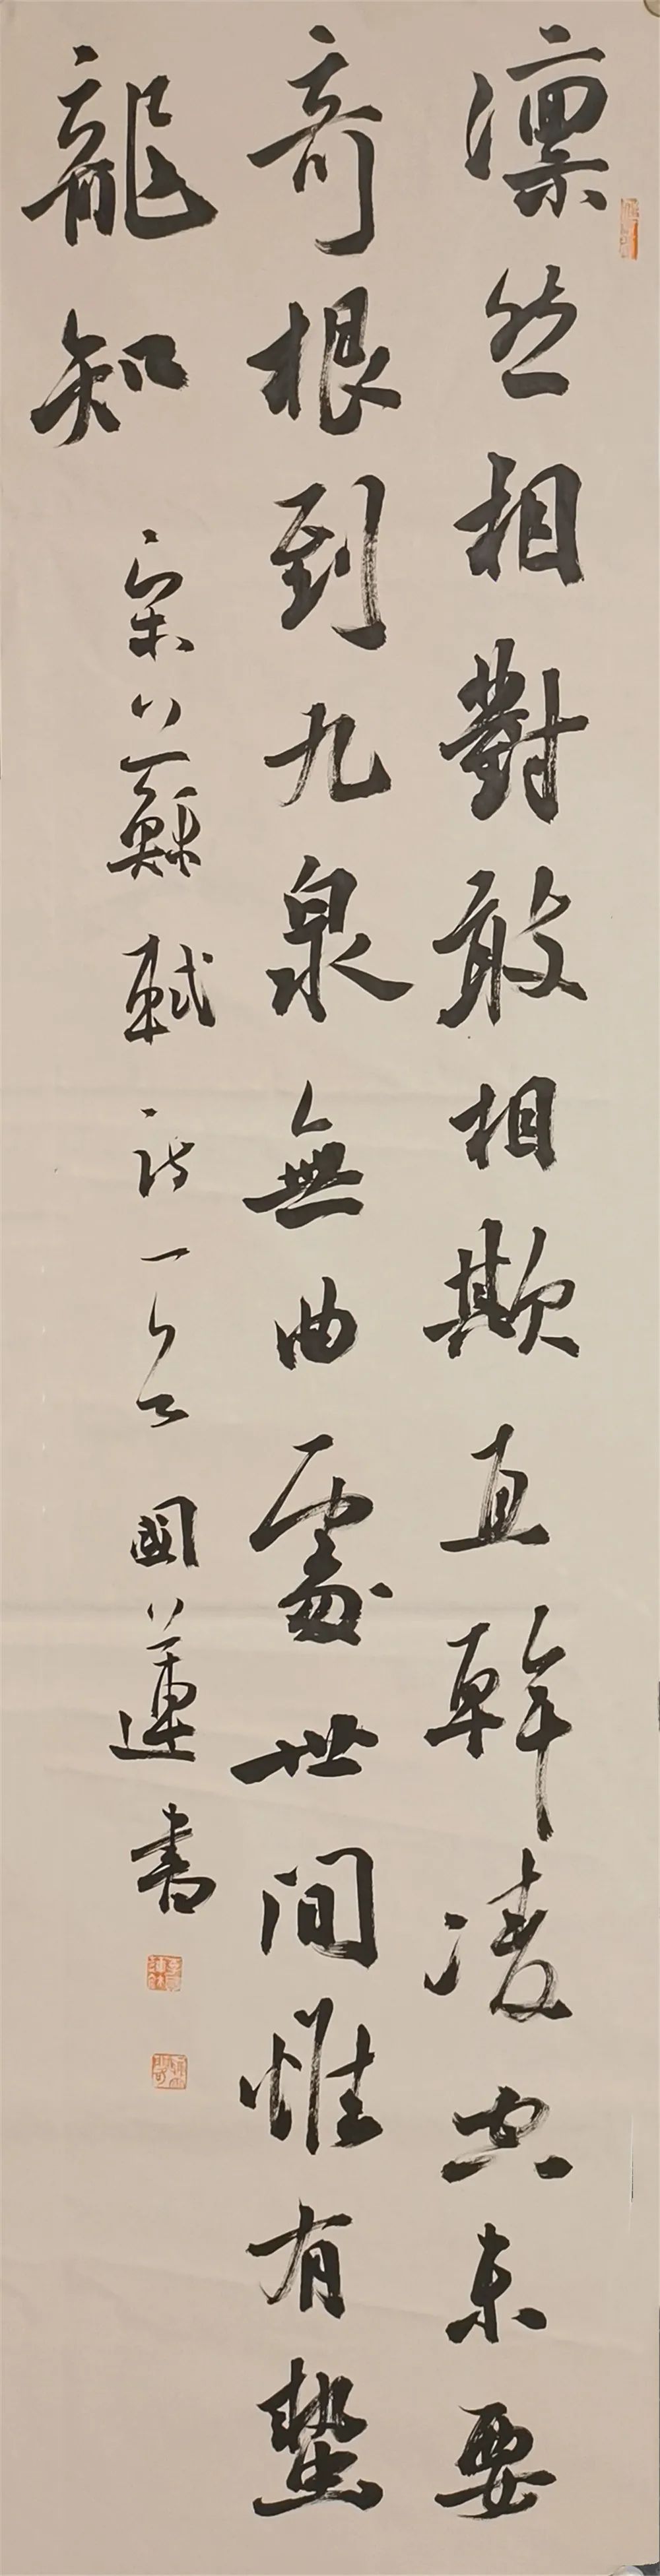 凛然相對敢相欺直幹凌空未要
奇根到九泉無曲處世間惟有蟄
龍知
宋人蘇軾詩一首國蓮書